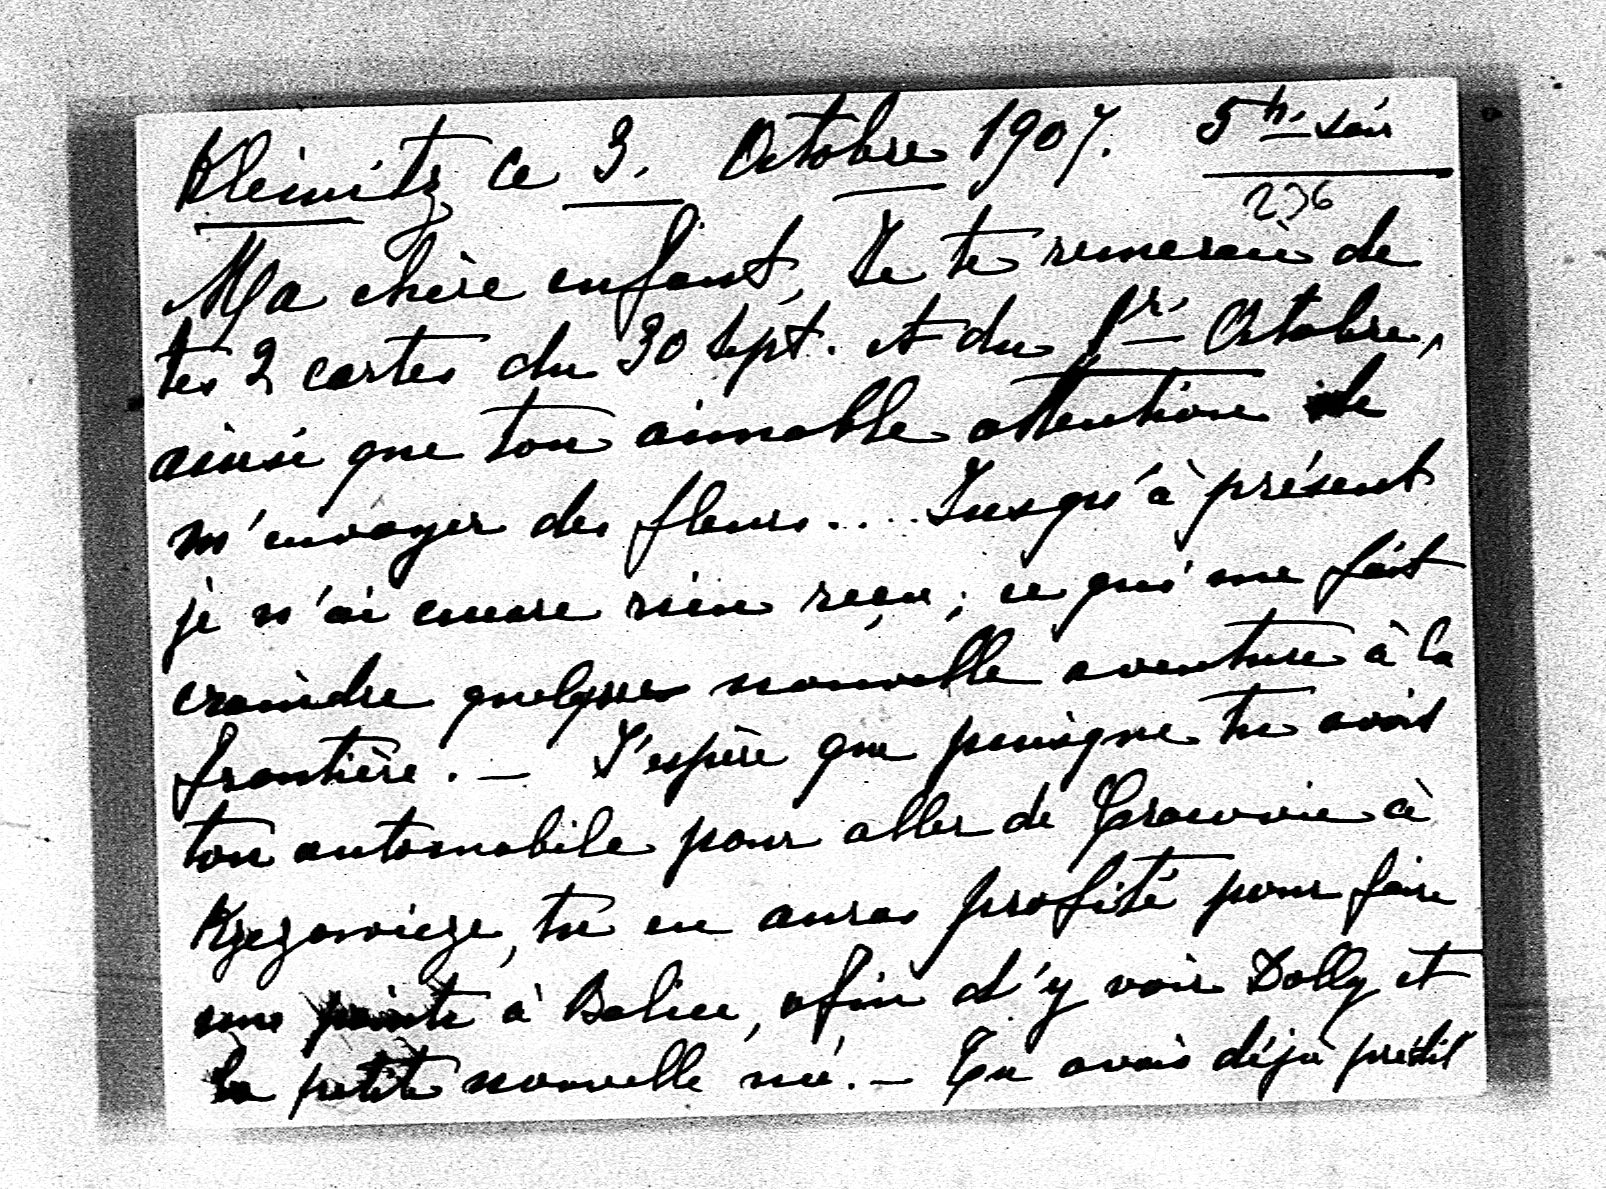 Kleinitz ce 3. Octobre 1907. 5h. soir
236
Ma chère enfant, Je te remercie de
tes 2 cartes du 30 Sept. et du 1r. Octobre,
ainsi que ton aimable attention de
m'envoyer des fleurs.... Jusqu'à présent
je n'ai encore rien reçu; ce qui me fait
craindre quelques nouvelle aventure à la
frontière. — J'espère que puisque tu avais
ton automobile pour aller de Cracovie à
tu en auras profité pour faire
une pointe à Balice, afin d'y voir Dolly et
la petite nouvelle née. — Tu avais déjà prédit